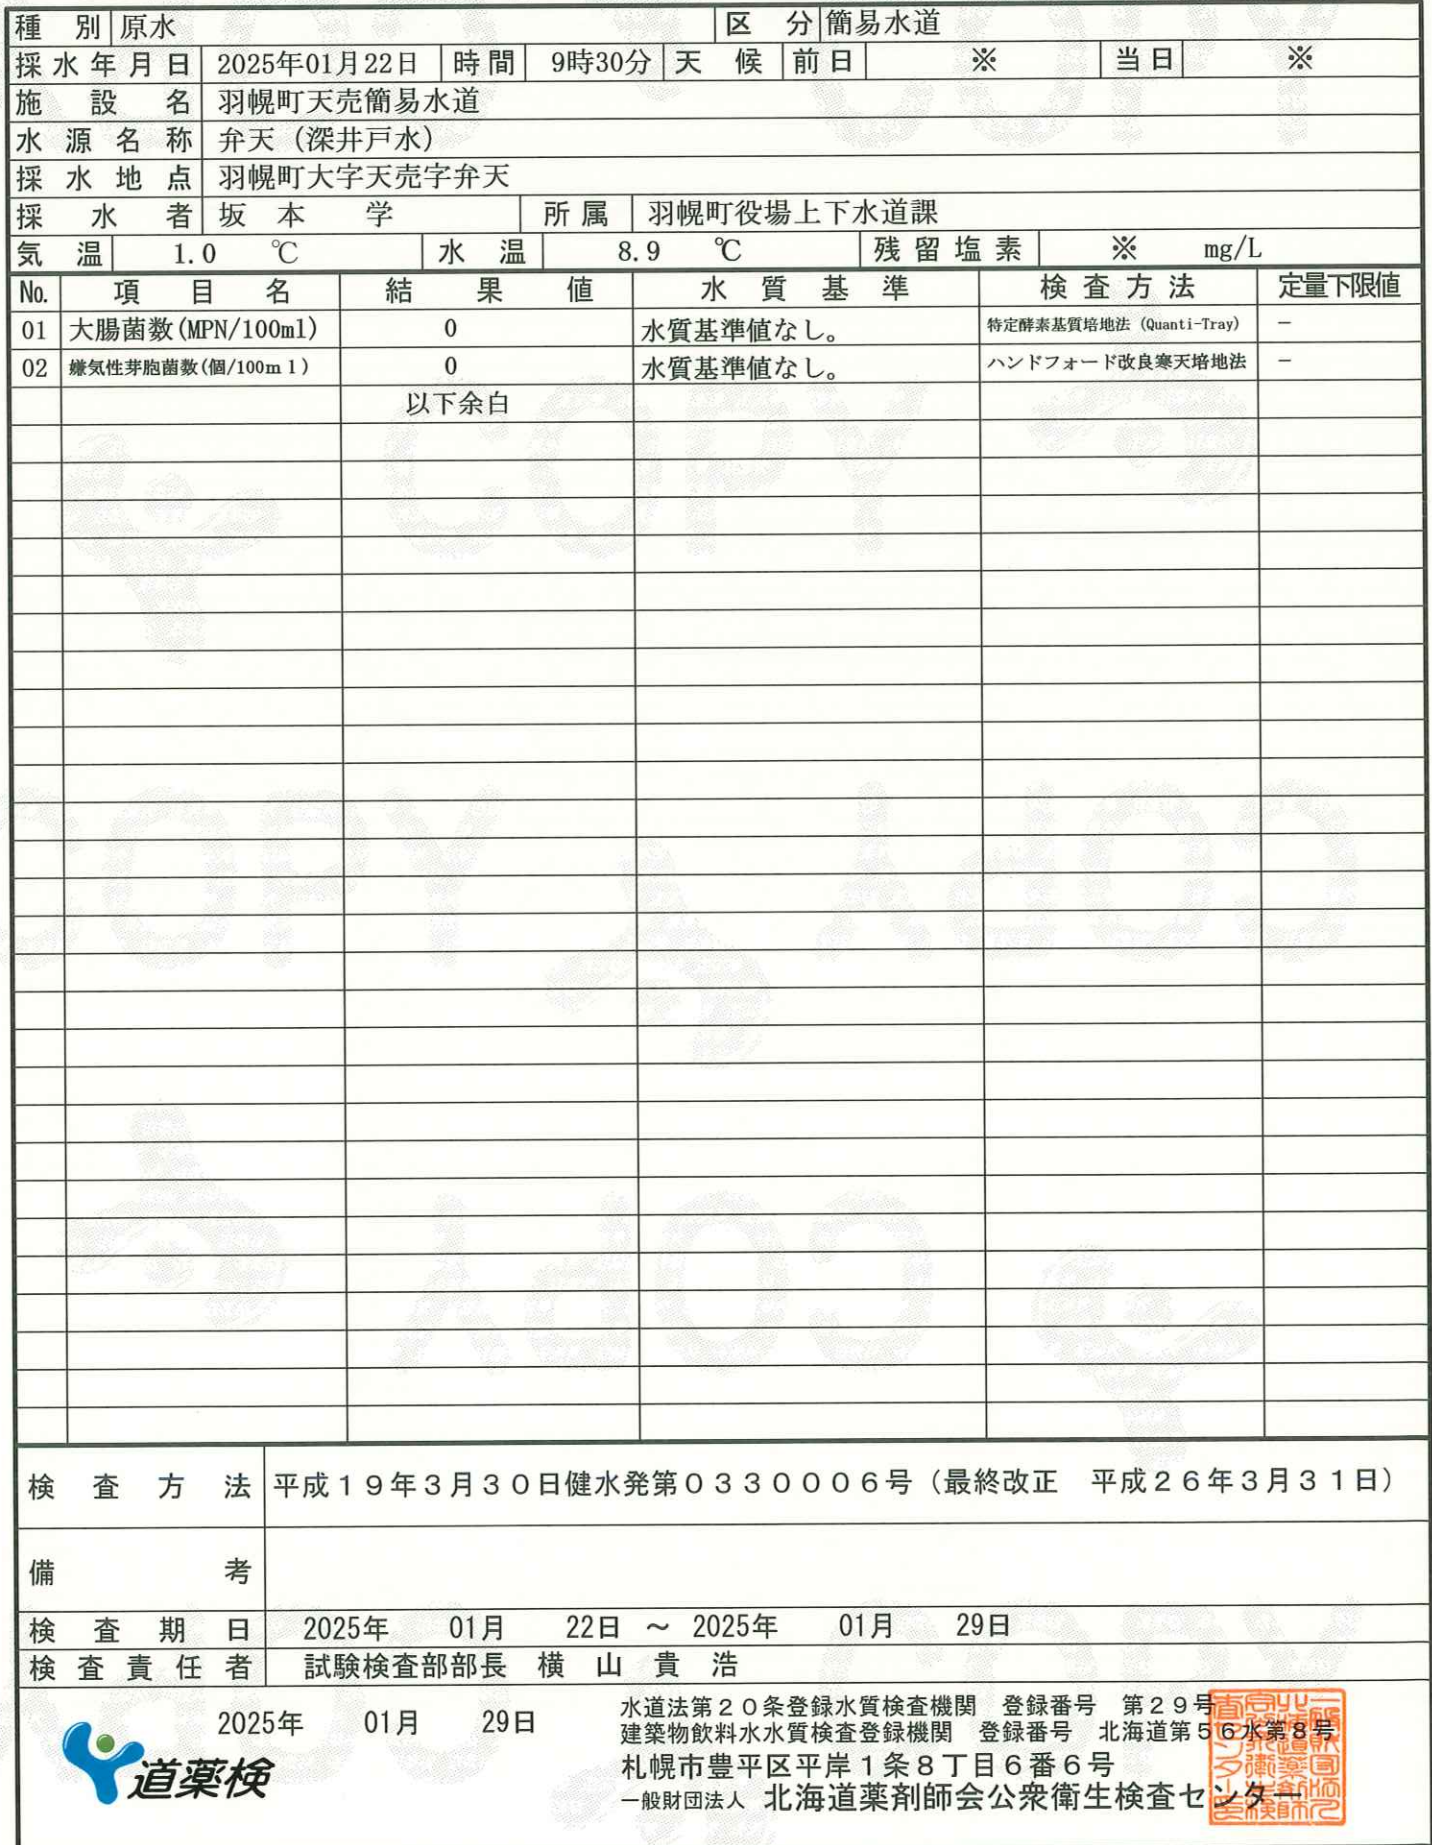 種 別 原水 区 分 簡易水道
採水年月日 2025年01月22日 時間 9時30分 天 候 前日 ※ 当日 ※
施 設 名 羽幌町天売簡易水道
水源名称 弁天（深井戸水）
採水地点 羽幌町大字天売字弁天
採 水 者 坂 本 学 所属 羽幌町役場上下水道課
気 温 1.0 ℃ 水 温 8.9 ℃ 残留塩素 ※ mg/L
No. 項 目 名 結 果 値 水 質 基 準 検査方法 定量下限値
01 大腸菌数(MPN/100ml) 0 水質基準値なし。 特定酵素基質培地法（Quanti-Tray） －
02 嫌気性芽胞菌数(個/100ｍｌ) 0 水質基準値なし。 ハンドフォード改良寒天培地法 －
以下余白
検 査 方 法 平成１９年３月３０日健水発第０３３０００６号（最終改正 平成２６年３月３１日）
備 考
検 査 期 日 2025年 01月 22日 ～ 2025年 01月 29日
検査責任者 試験検査部部長 横 山 貴 浩
2025年 01月 29日
水道法第２０条登録水質検査機関 登録番号 第２９号
建築物飲料水水質検査登録機関 登録番号 北海道第５６水第８号
札幌市豊平区平岸１条８丁目６番６号
一般財団法人 北海道薬剤師会公衆衛生検査センター
道薬検
COPY
COPY
COPY
COPY
COPY
COPY